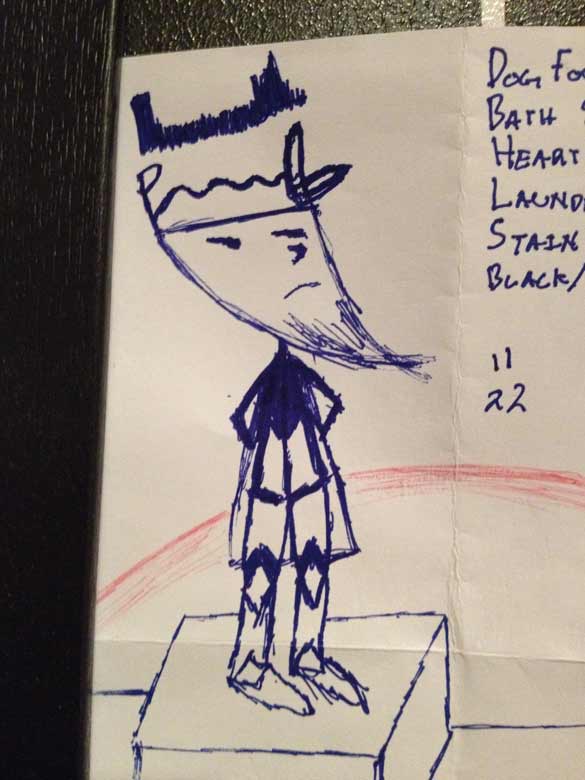 DOG FO
BATH
HEART
LAUND
STAIN
BLACK/
11
22